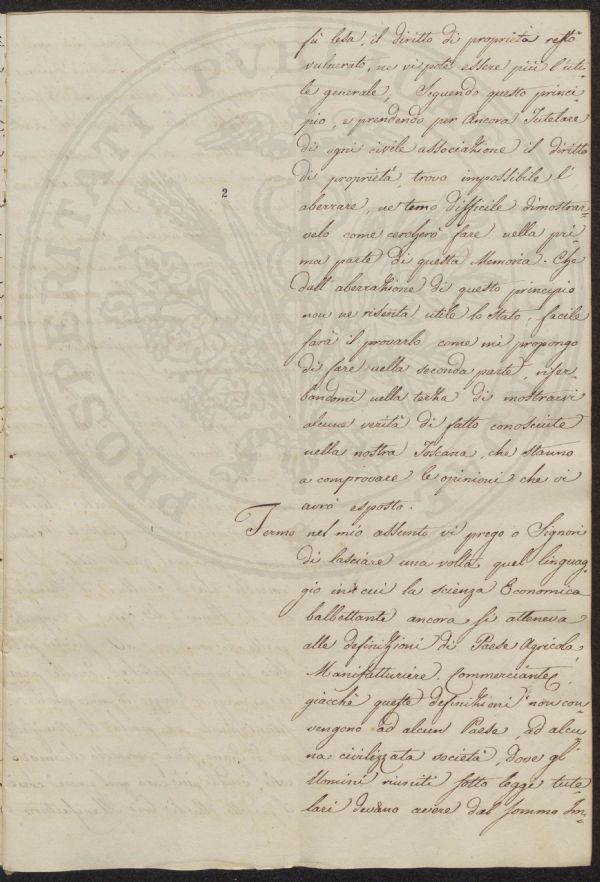 fù lesa, il diritto di proprietà restò
vulnerato, ne vi potè essere più l'uti-
le generale. Seguendo questo princi-
pio, e prendendo per Ancora Tutelare
di ogni civile associazione il diritto
di proprietà, trovo impossibile l'
aberrare, ne temo difficile dimostrar-
velo come cercherò fare nella pri-
ma parte di questa Memoria. Che
dall'aberrazione di questo principio
non ne risenta utile lo Stato, facile
sarà il provarlo come mi propongo
di fare nella seconda parte, riser-
bandomi nella terza di mostrarvi
alcune verità di fatto conosciute
nella nostra Toscana, che stanno
a comprovare le opinioni che vi
avrò esposto.
2
Fermo nel mio assunto vi prego o Signori
di lasciare una volta quel linguag-
gio in cui la scienza Economica
balbettante ancora si atteneva
alle definizioni di Paese Agricola
Manifatturiere, Commerciante,
giacchè queste definizioni non con-
vengono ad alcun Paese, ad alcu-
na civilizzata società, dove gl'
Uomini riuniti sotto leggi tute-
lari devano avere dal sommo Im-
PROSPERITATI PVBLICAE